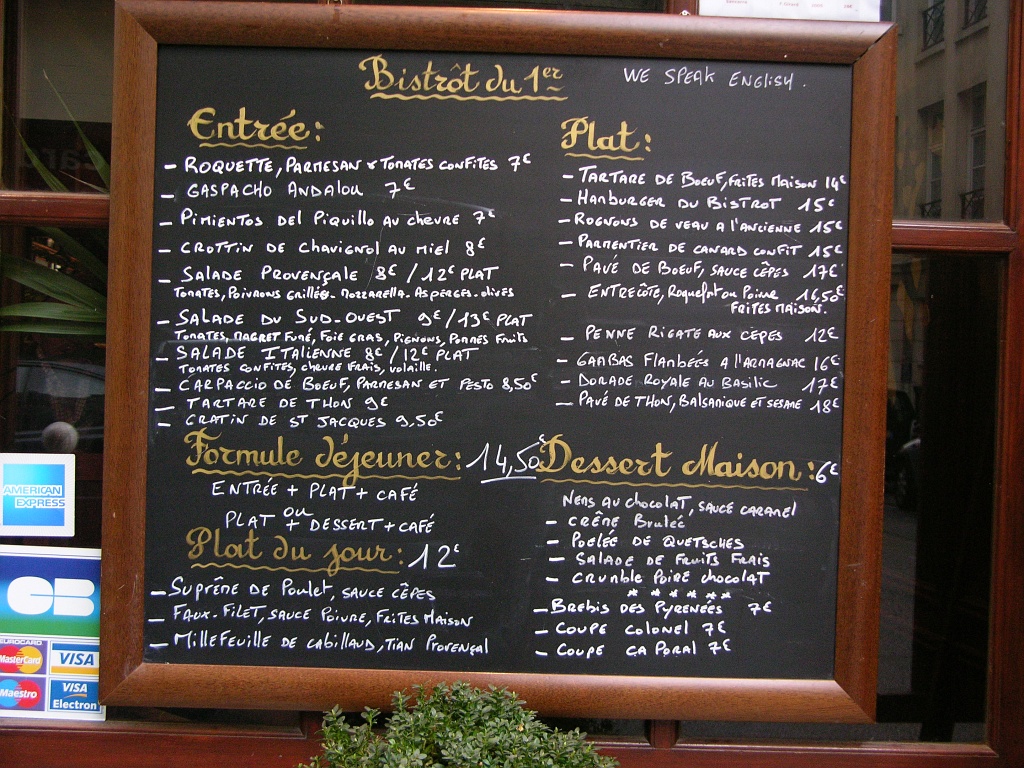 Bistrôt du 1er
WE SPEAK ENGLISH.
Entrée:
- ROQUETTE, PARMESAN & TOMATES CONFITES 7€
- GASPACHO ANDALOU 7€
- PIMIENTOS DEL PIQUILLO AU CHEVRE 7€
- CROTTIN DE CHAVIGNOL AU MIEL 8€
- SALADE PROVENÇALE 8€ / 12€ PLAT
TOMATES, POIVRONS GRILLÉS. MOZZARELLA. ASPERGES. OLIVES
- SALADE DU SUD-OUEST 9€ / 13€ PLAT
TOMATES, MAGRET FUMÉ, FOIE GRAS, PIGNONS, POMMES FRUITS
- SALADE ITALIENNE 8€ / 12€ PLAT
TOMATES CONFITES, CHEVRE FRAIS, VOLAILLE.
- CARPACCIO DE BOEUF, PARMESAN ET PESTO 8,50€
- TARTARE DE THON 9€
- GRATIN DE ST JACQUES 9,50€
Formule déjeuner: 14,50€
ENTRÉE + PLAT + CAFÉ
OU
PLAT + DESSERT + CAFÉ
Plat du jour: 12€
- SUPRÊME DE POULET, SAUCE CÊPES
- FAUX-FILET, SAUCE POIVRE, FRITES MAISON
- MILLEFEUILLE DE CABILLAUD, TIAN PROVENÇAL
Plat:
- TARTARE DE BOEUF, FRITES MAISON 14€
- HAMBURGER DU BISTROT 15€
- ROGNONS DE VEAU A L'ANCIENNE 15€
- PARMENTIER DE CANARD CONFIT 15€
- PAVÉ DE BOEUF, SAUCE CÊPES 17€
- ENTRECÔTE, ROQUEFORT OU POIVRE 16,50€
FRITES MAISON.
- PENNE RIGATE AUX CEPES 12€
- GAMBAS FLANBÉES A L'ARMAGNAC 16€
- DORADE ROYALE AU BASILIC 17€
- PAVÉ DE THON, BALSAMIQUE ET SESAME 18€
Dessert Maison: 6€
NEMS AU CHOCOLAT, SAUCE CARAMEL
- CRÊME BRULEÉ
- POELÉE DE QUETSCHES
- SALADE DE FRUITS FRAIS
- CRUMBLE POIRE CHOCOLAT
* * * * * *
- BREBIS DES PYRENÉES 7€
- COUPE COLONEL 7€
- COUPE CAPORAL 7€
AMERICAN EXPRESS
CB
EUROCARD
MasterCard
VISA
Maestro
VISA
Electron